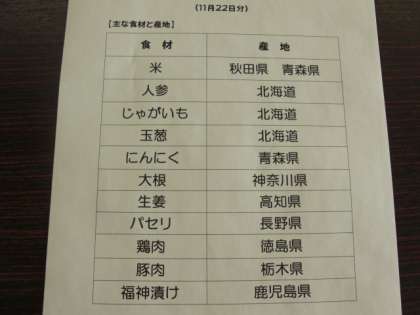 (11月22日分)
【主な食材と産地】
食材 産地
米 秋田県 青森県
人参 北海道
じゃがいも 北海道
玉葱 北海道
にんにく 青森県
大根 神奈川県
生姜 高知県
パセリ 長野県
鶏肉 徳島県
豚肉 栃木県
福神漬け 鹿児島県